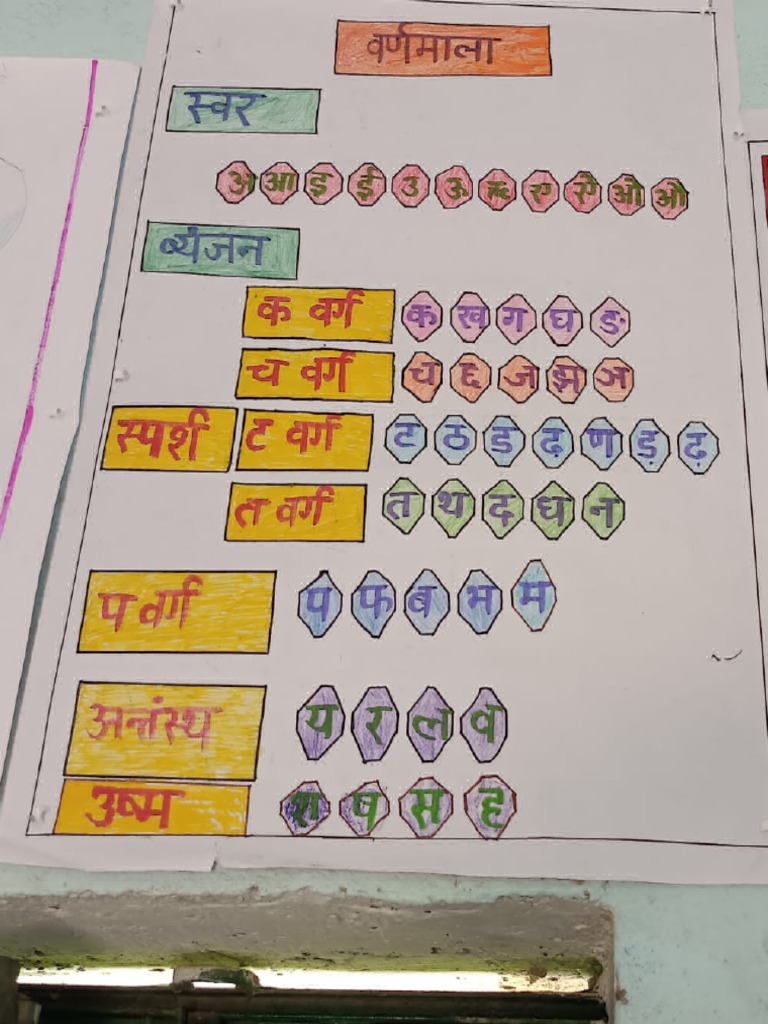 वर्णमाला
स्वर
अ आ इ ई उ ऊ ऋ ए ऐ ओ औ
व्यंजन
क वर्ग क ख ग घ ङ
च वर्ग च छ ज झ ञ
स्पर्श ट वर्ग ट ठ ड ढ ण ड़ ढ़
त वर्ग त थ द ध न
प वर्ग प फ ब भ म
अन्तंस्थ य र ल व
उष्म श ष स ह